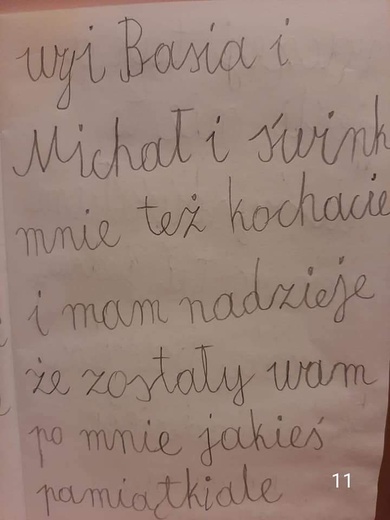 wyi Basia i
Michał i śwink
mnie też kochacie
i mam nadzieje
że zostały wam
po mnie jakieś
pamiątkiale
11